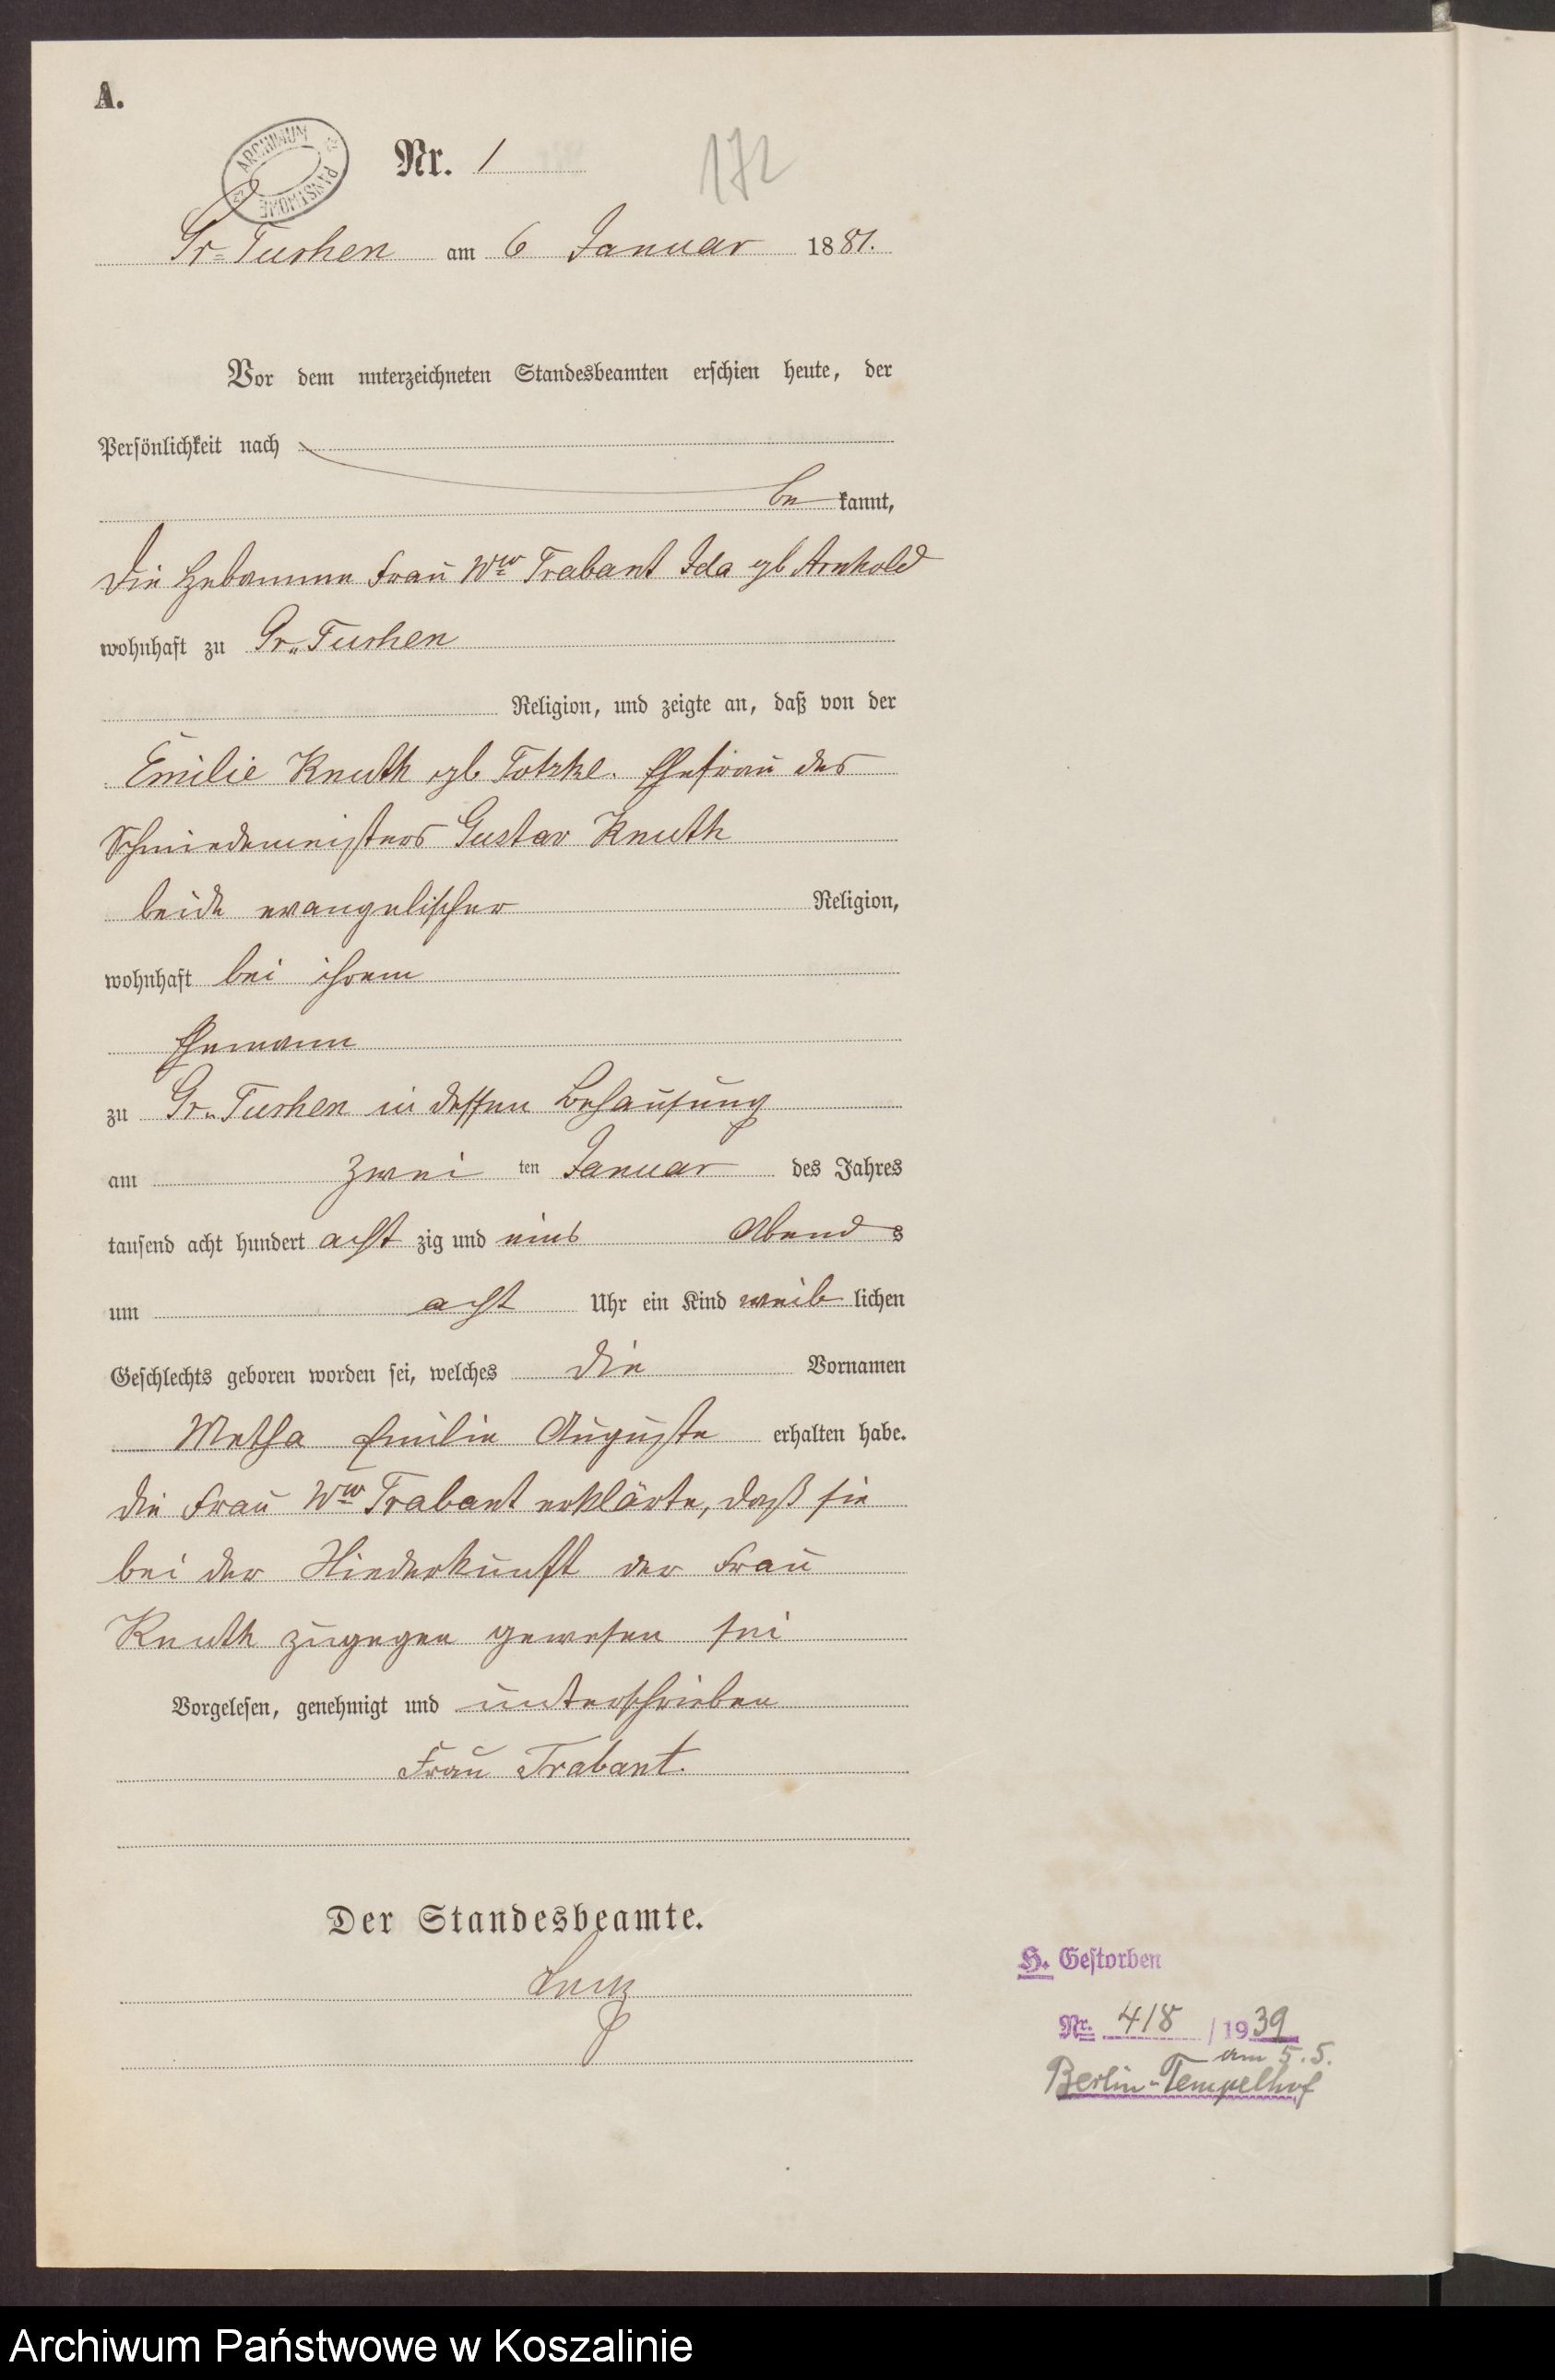 A.
ARCHIWUM PAŃSTWOWE
Nr. 1
172
Gr= Tuchen am 6 Januar 1881.
Vor dem unterzeichneten Standesbeamten erschien heute, der
Persönlichkeit nach
be kannt,
die Hebamme Frau Ww Trabant Ida gb Arnhold
wohnhaft zu Gr. Tuchen
Religion, und zeigte an, daß von der
Emilie Knuth gb Totzke. Ehefrau des
Schmiedemeisters Gustav Knuth
beide evangelischer Religion,
wohnhaft bei ihrem
Ehemann
zu Gr. Tuchen in dessen Behausung
am zwei ten Januar des Jahres
tausend acht hundert acht zig und eins Abend s
um acht Uhr ein Kind weib lichen
Geschlechts geboren worden sei, welches die Vornamen
Metha Emilie Auguste erhalten habe.
die Frau Ww Trabant erklärte, daß sie
bei der Niederkunft der Frau
Knuth zugegen gewesen sei
Vorgelesen, genehmigt und unterschrieben
Frau Trabant.
Der Standesbeamte.
H. Gestorben
Nr. 418 / 1939
am 5.5.
Berlin-Tempelhof
Archiwum Państwowe w Koszalinie